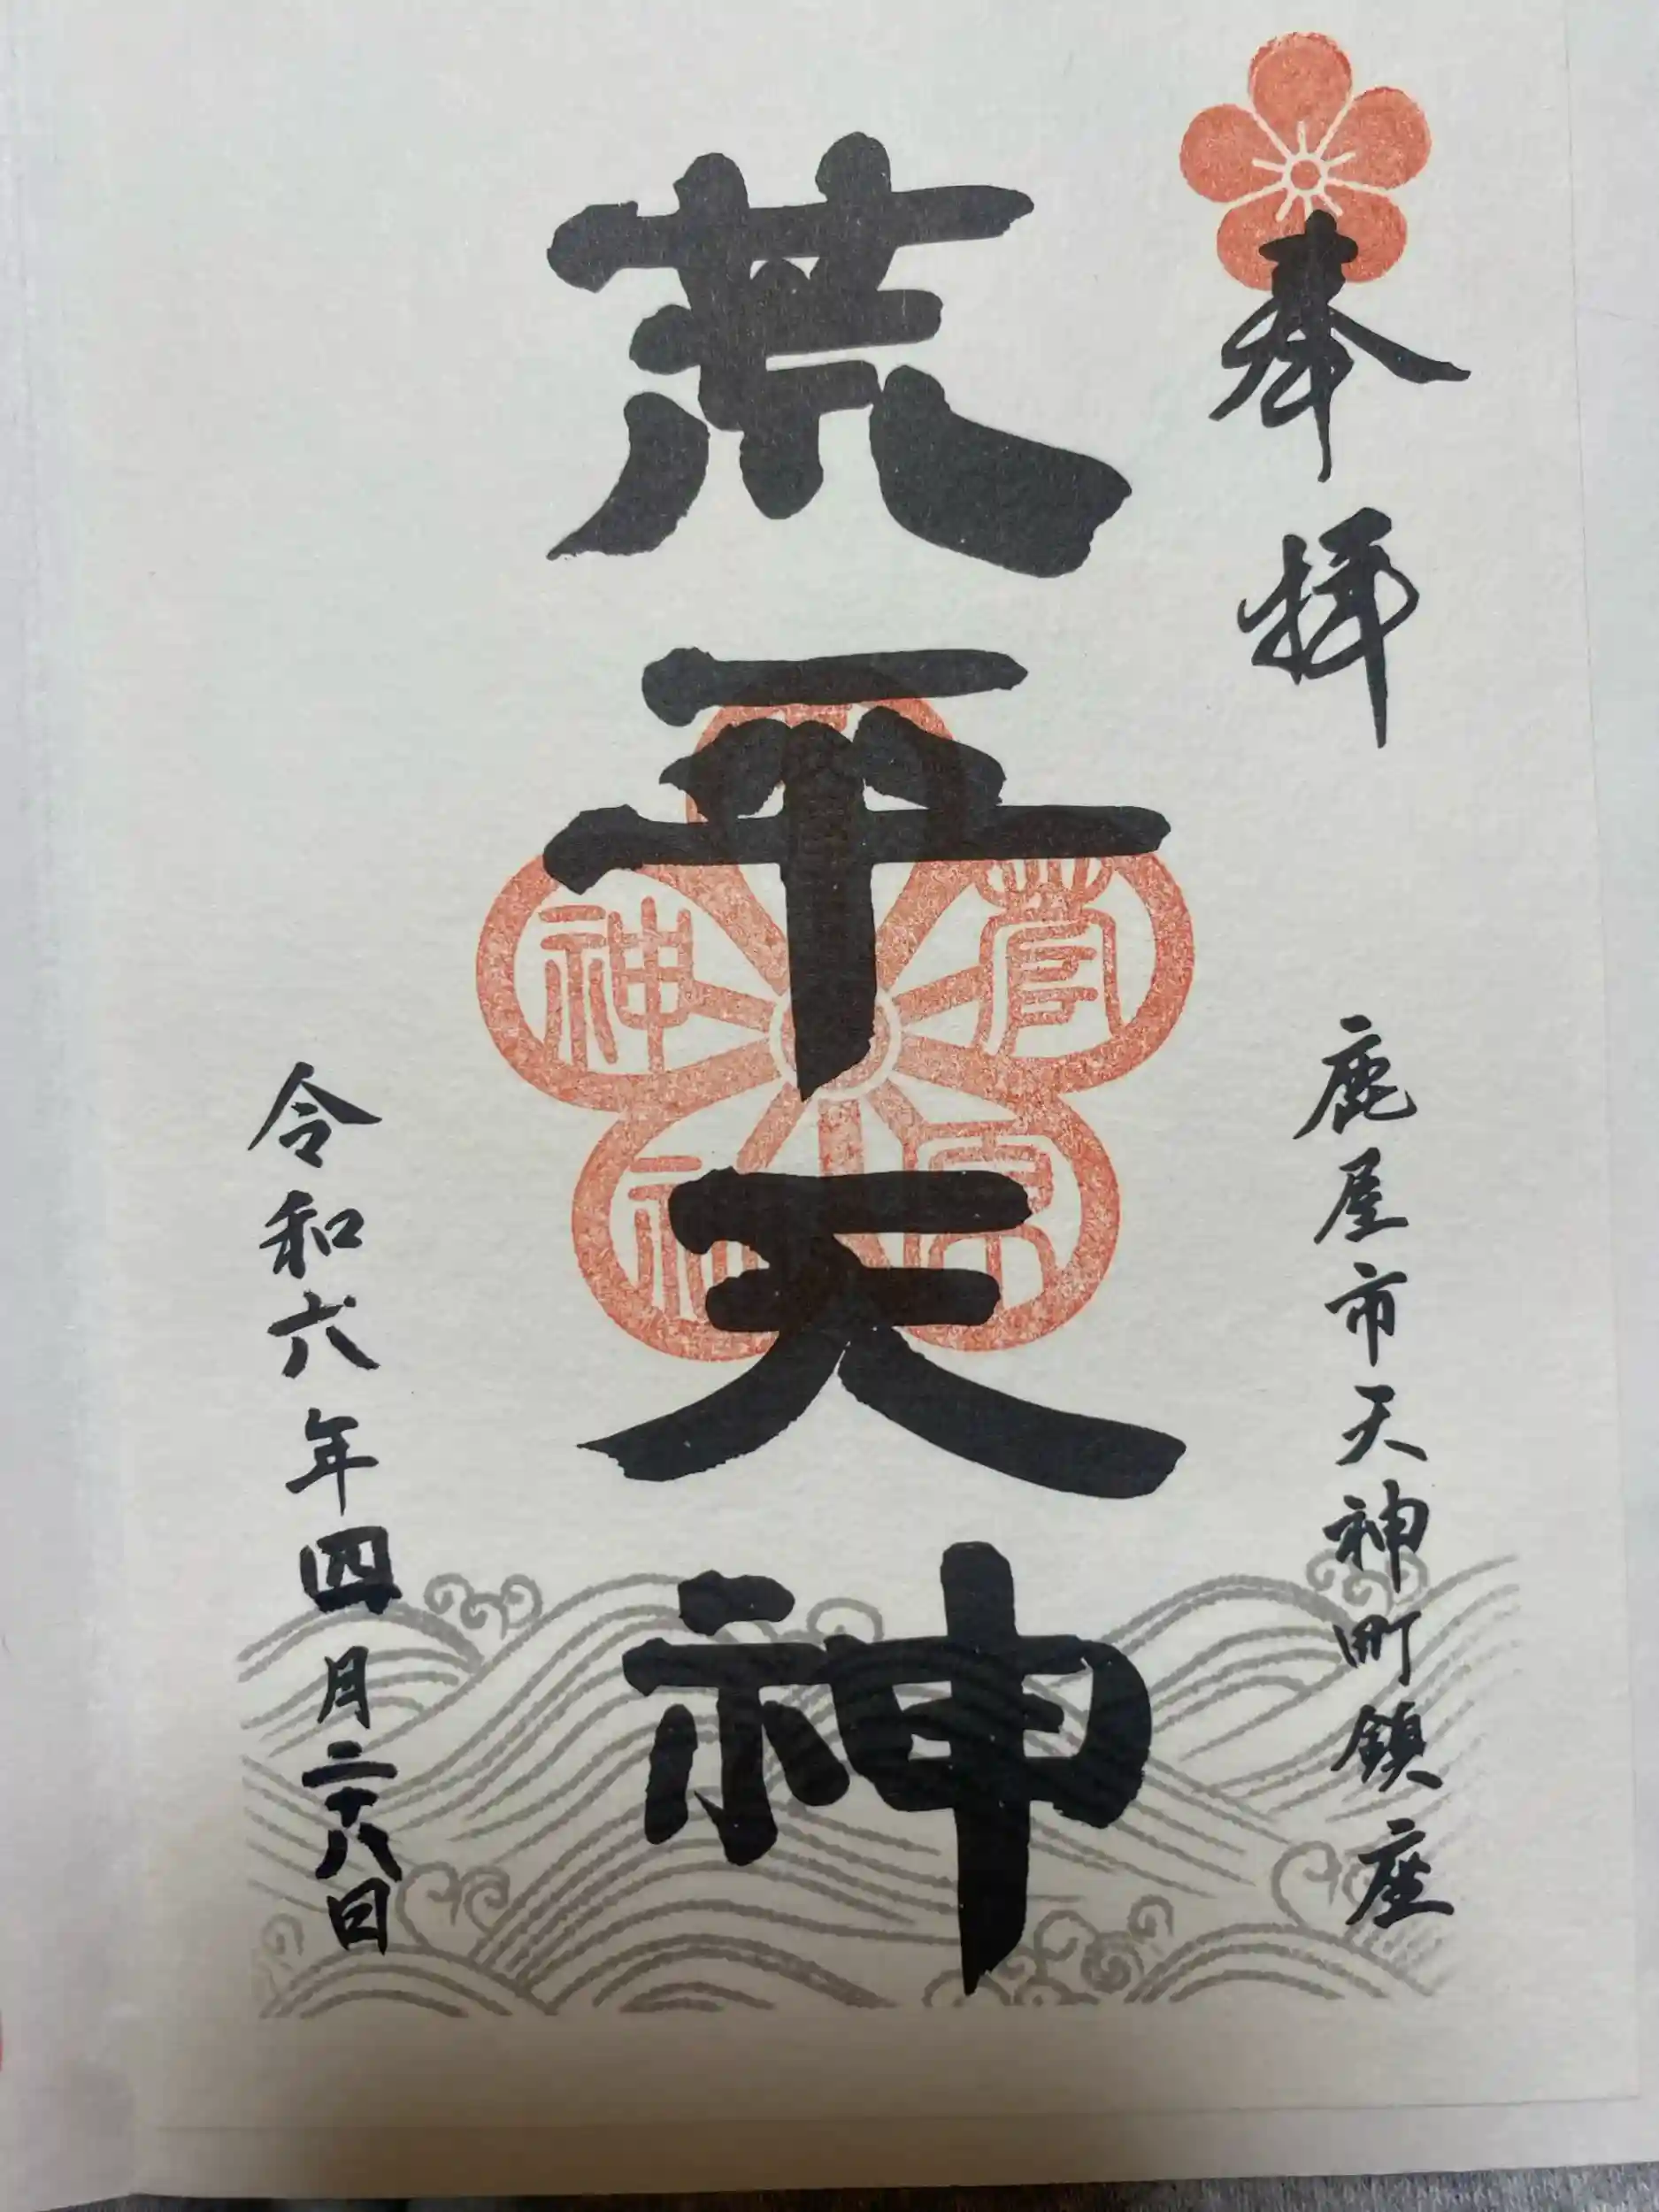 奉拝
鹿屋市天神町鎮座
荒平天神
菅
神
令和六年四月二十八日